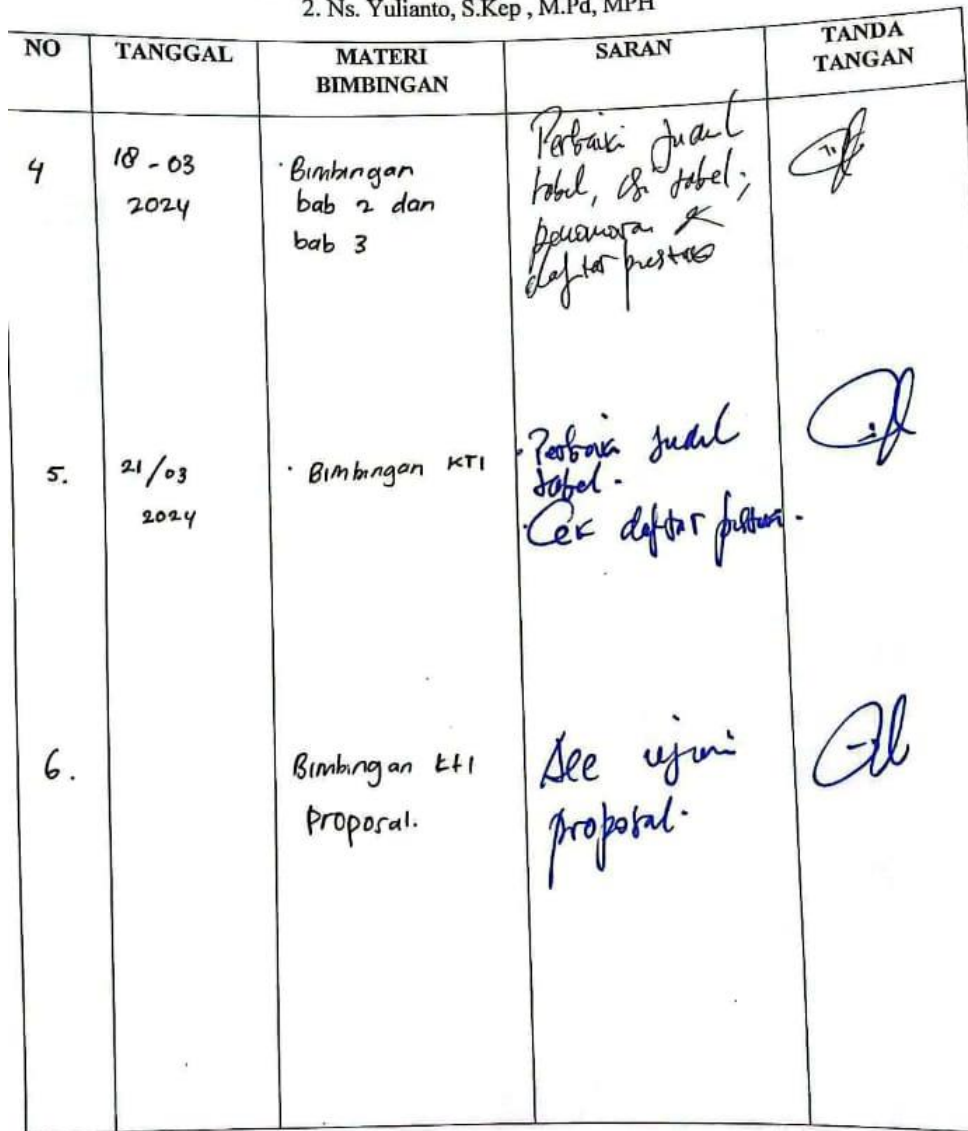 2. Ns. Yulianto, S.Kep , M.Pd, MPH
NO
TANGGAL
MATERI
BIMBINGAN
SARAN
TANDA
TANGAN
4
18 - 03
2024
· Bimbingan
bab 2 dan
bab 3
Perbaiki judul
tabel, isi tabel,
penomoran &
daftar pustaka
5.
21/03
2024
· Bimbingan KTI
· Perbaiki judul
tabel.
· Cek daftar pustaka.
6.
Bimbingan KTI
Proposal.
Acc ujian
proposal.